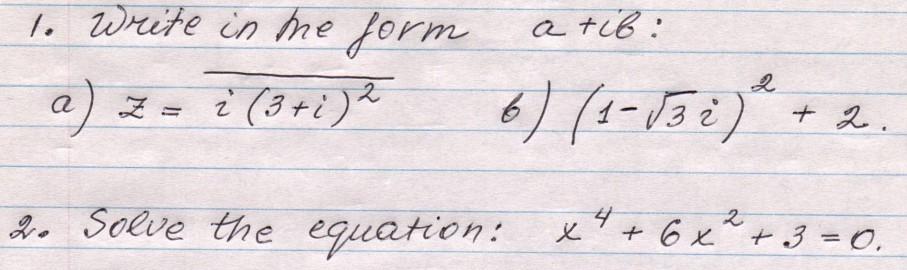 1. Write in the form a+ib:
a) z = \overline{i(3+i)^2} b) (1-√3 i)^2 + 2.
2. Solve the equation: x^4 + 6x^2 + 3 = 0.